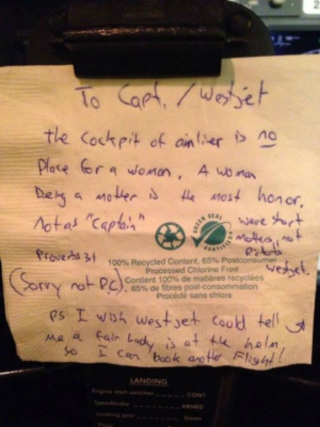 To Capt. / Westjet
the cockpit of airliner is no
place for a woman. A woman
being a mother is the most honor.
Not as "Captain"
were short
mothers, not
pilots
westjet.
Proverbs 31
(Sorry not P.C.)
GREEN SEAL
CERTIFIED
100% Recycled Content, 65% Postconsumer
Processed Chlorine Free
Contient 100% de matières recyclées
65% de fibres post-consommation
Procédé sans chlore
PS I wish westjet could tell
me a fair lady is at the helm
so I can book another flight!
LANDING
Engine start switches CONT
Speedbrake ARMED
Landing gear Down
2